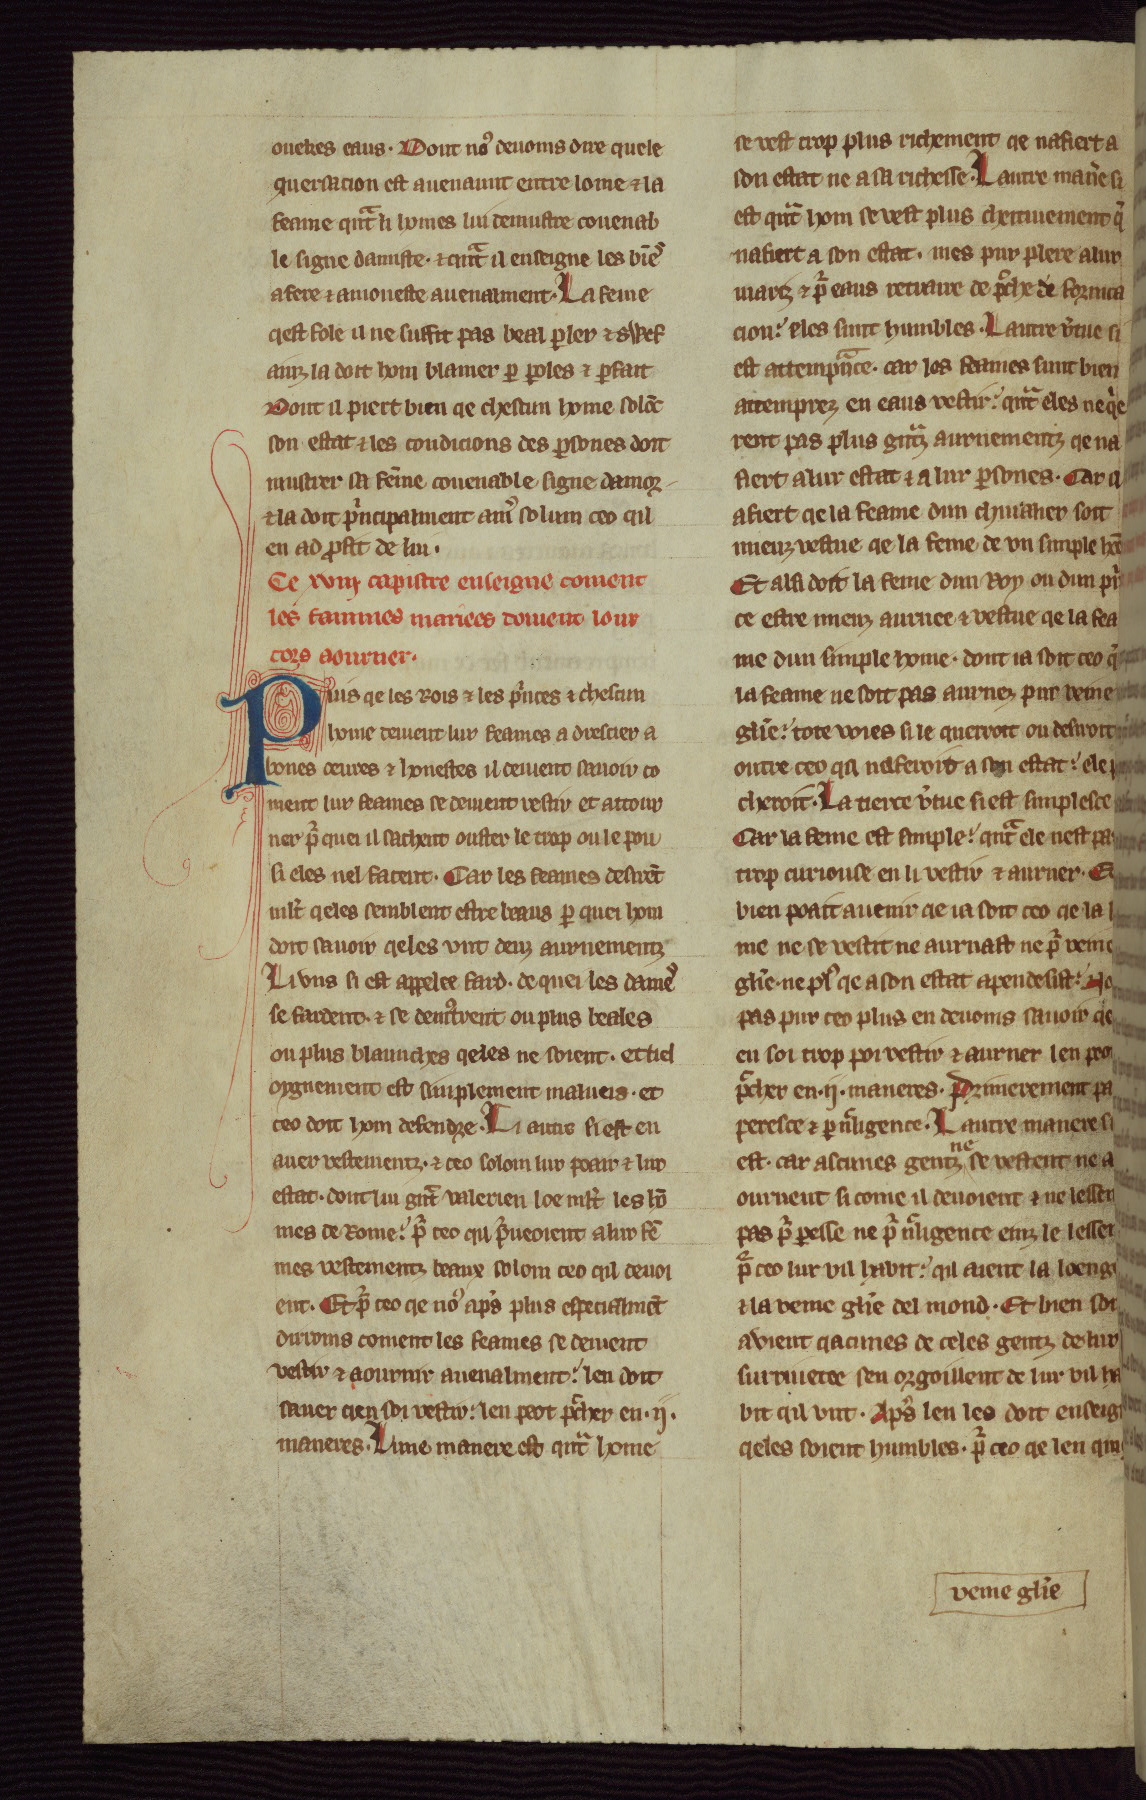 ouekes eaus. Dont no9 deuoms dire quele
qversacion est auenaunt entre lome ⁊ la
feame qnt̃ li homes lui demustre couenab
le signe damiste. ⁊ qnt̃ il enseigne les biẽs
afere ⁊ amoneste auenalment. La feme
qest fole il ne suffit pas beal ꝑler ⁊ swef
ainz la doit hom blamer ꝑ ꝑoles ⁊ ꝑ fait
Dont il piert bien qe chescun home soloc̃
son estat ⁊ les condicions des ꝑsones doit
mustrer sa fẽme couenable signe damor
⁊ la doit p̃ncipalment am̾ solum ceo qil
en ad ꝓfit de lui.
Ce xviij capistre enseigne coment
les fammes mariees doiuent lour
cors aourner.
Puis qe les Rois ⁊ les p̃nces ⁊ chescun
home deiuent lur feames a drescier a
bones oeures ⁊ honestes il deiuent sauoir co
ment lur feames se deiuent vestir et attour
ner p̃ quei il sachent ouster le trop ou le pou
si eles nel facent. Car les feames desirẽt
mlt̃ qeles semblent estre beaus ꝑ quei hom
doit sauoir qeles vnt deuz aurnementz
Li vns si est appelee fard. de quei les dames
se fardent. ⁊ se demõtrent ou plus beales
ou plus blaunches qeles ne soient. et tiel
orgnement est simplement malueis. et
ceo doit hom defendre. Li autre si est en
auer vestementz. ⁊ ceo solom lur poair ⁊ lur
estat. dont lui gñt valerien loe mlt̃ les hõ
mes de Rome. p̃ ceo qil p̃ueoient a lur fẽ
mes vestementz beaux solom ceo qil deuoi
ent. Et p̃ ceo qe no9 ap̃s plus especialmẽt
dirroms coment les feames se deiuent
vestir ⁊ aournir auenalment. len doit
sauer qen soi vestir. len peot pecher en .ij.
maneres. Lune manere est qnt̃ home
se vest trop plus richement qe nafiert a
son estat ne a sa richesse. Lautre man̾e si
est qnt̃ hom se vest plus cheitiuement q̃
nafiert a son estat. mes pur plere a lur
mariz ⁊ p̃ eaus retraire de peche de fornica
cion. eles sunt humbles. Lautre v̾tue si
est attemprance. car los feames sunt bien
attemprez en eaus vestir. qnt̃ eles ne qe
rent pas plus gñtz aurnementz qe na
fiert a lur estat ⁊ a lur ꝑsones. Car il
afiert qe la feame dun chiualier soit
mieuz vestue qe la feme de vn simple hõe
Et alsi doit la feme dun Roy ou dun prĩ
ce estre mieuz aurnee ⁊ vestue qe la fea
me dun simple home. dont ia soit ceo q̃
la feame ne soit pas aurnez pur veine
gl̃ie. tote voies si le queroit ou desiroit
outre ceo qil naferoit a son estat. ele p
cheroit. La tierce v̾tue si est simplesce
Car la feme est simple. qnt̃ ele nest pa
trop curiouse en li vestir ⁊ aurner. E
bien poait auenir qe ia soit ceo qe la
me ne se vestit ne aurnast ne p̃ veine
gl̃ie. ne pl9 qe a son estat apendesist.
pas pur ceo plus en deuoms sauoir qe
en soi trop poi vestir ⁊ aurner len peo
pecher en .ij. maneres. Primerement pa
peresce ⁊ ꝑ negligence. Lautre manere si
est. car ascunes gentz ne se vestent ne a
ournent si come il deuoient ⁊ ne lessen
pas p̃ ꝑesse ne p̃ negligence einz le lesser
p̃ ceo lur vil habit. qil aient la loenge
⁊ la veine gl̃ie del mond. Et bien soi
auient qacunes de celes gentz de lur
surruietee sen orgoillent de lur vil ha
bit qil vnt. Ap̃s len les doit enseig
qeles soient humbles. p̃ ceo qe len qui
veine gl̃ie